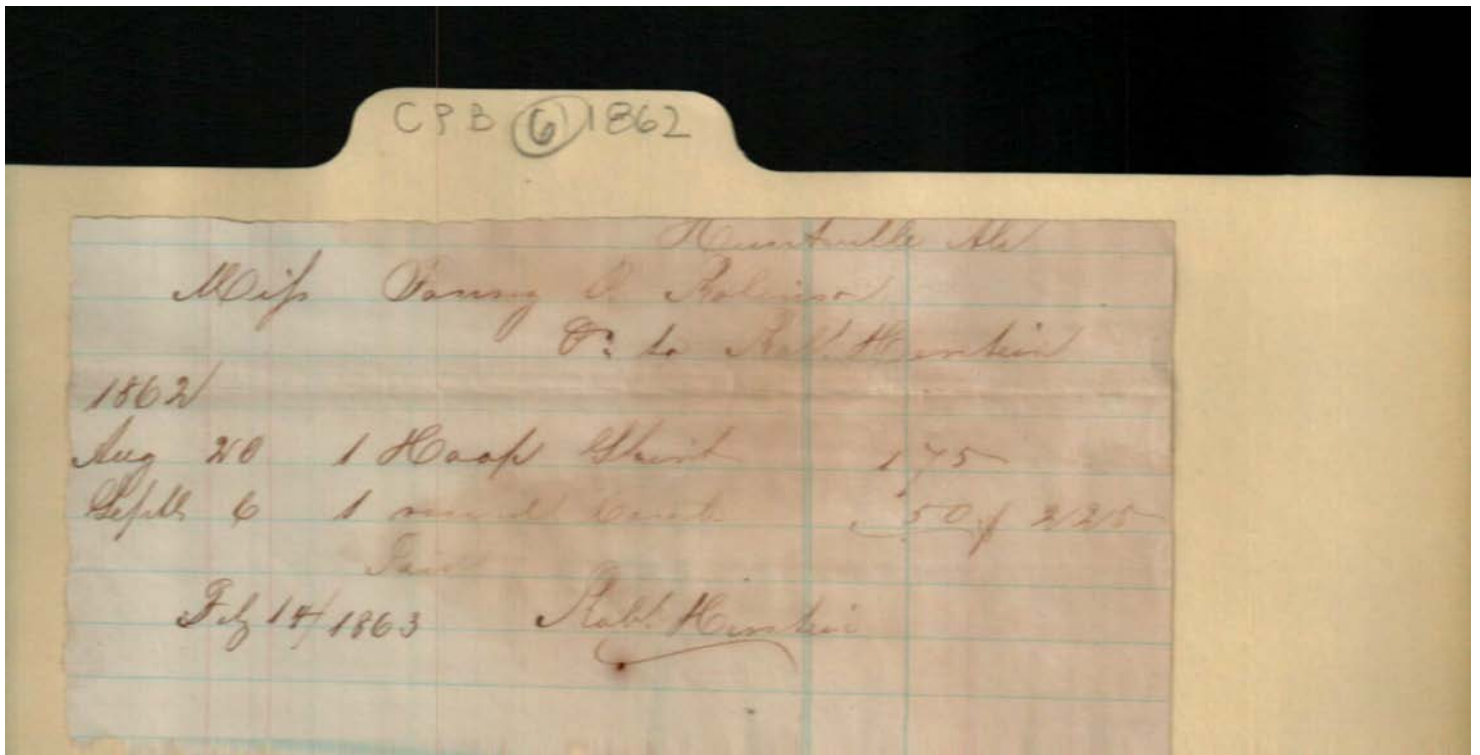 CPB 6 1862
Huntsville Ala
Miss Fanny Robinson
Dr. to Robt. Herstein
1862
Aug 20 1 Hoop Skirt 175
Septb 6 1 Comb 50 $ 225
Paid
Feby 14/1863 Robt Herstein